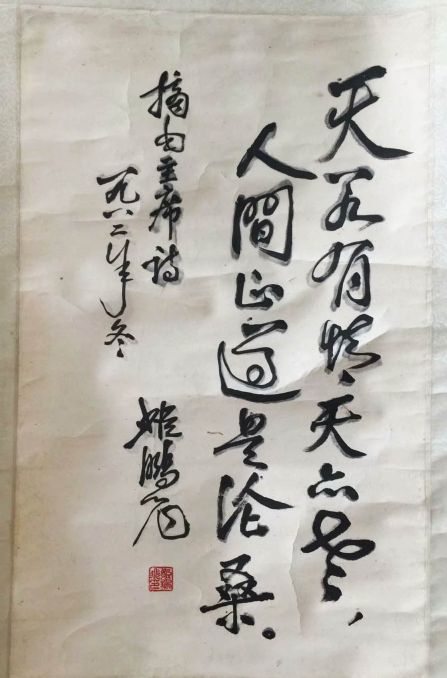 天若有情天亦老，
人間正道是沧桑。
摘毛主席诗
一九八二年冬
姬鹏飞